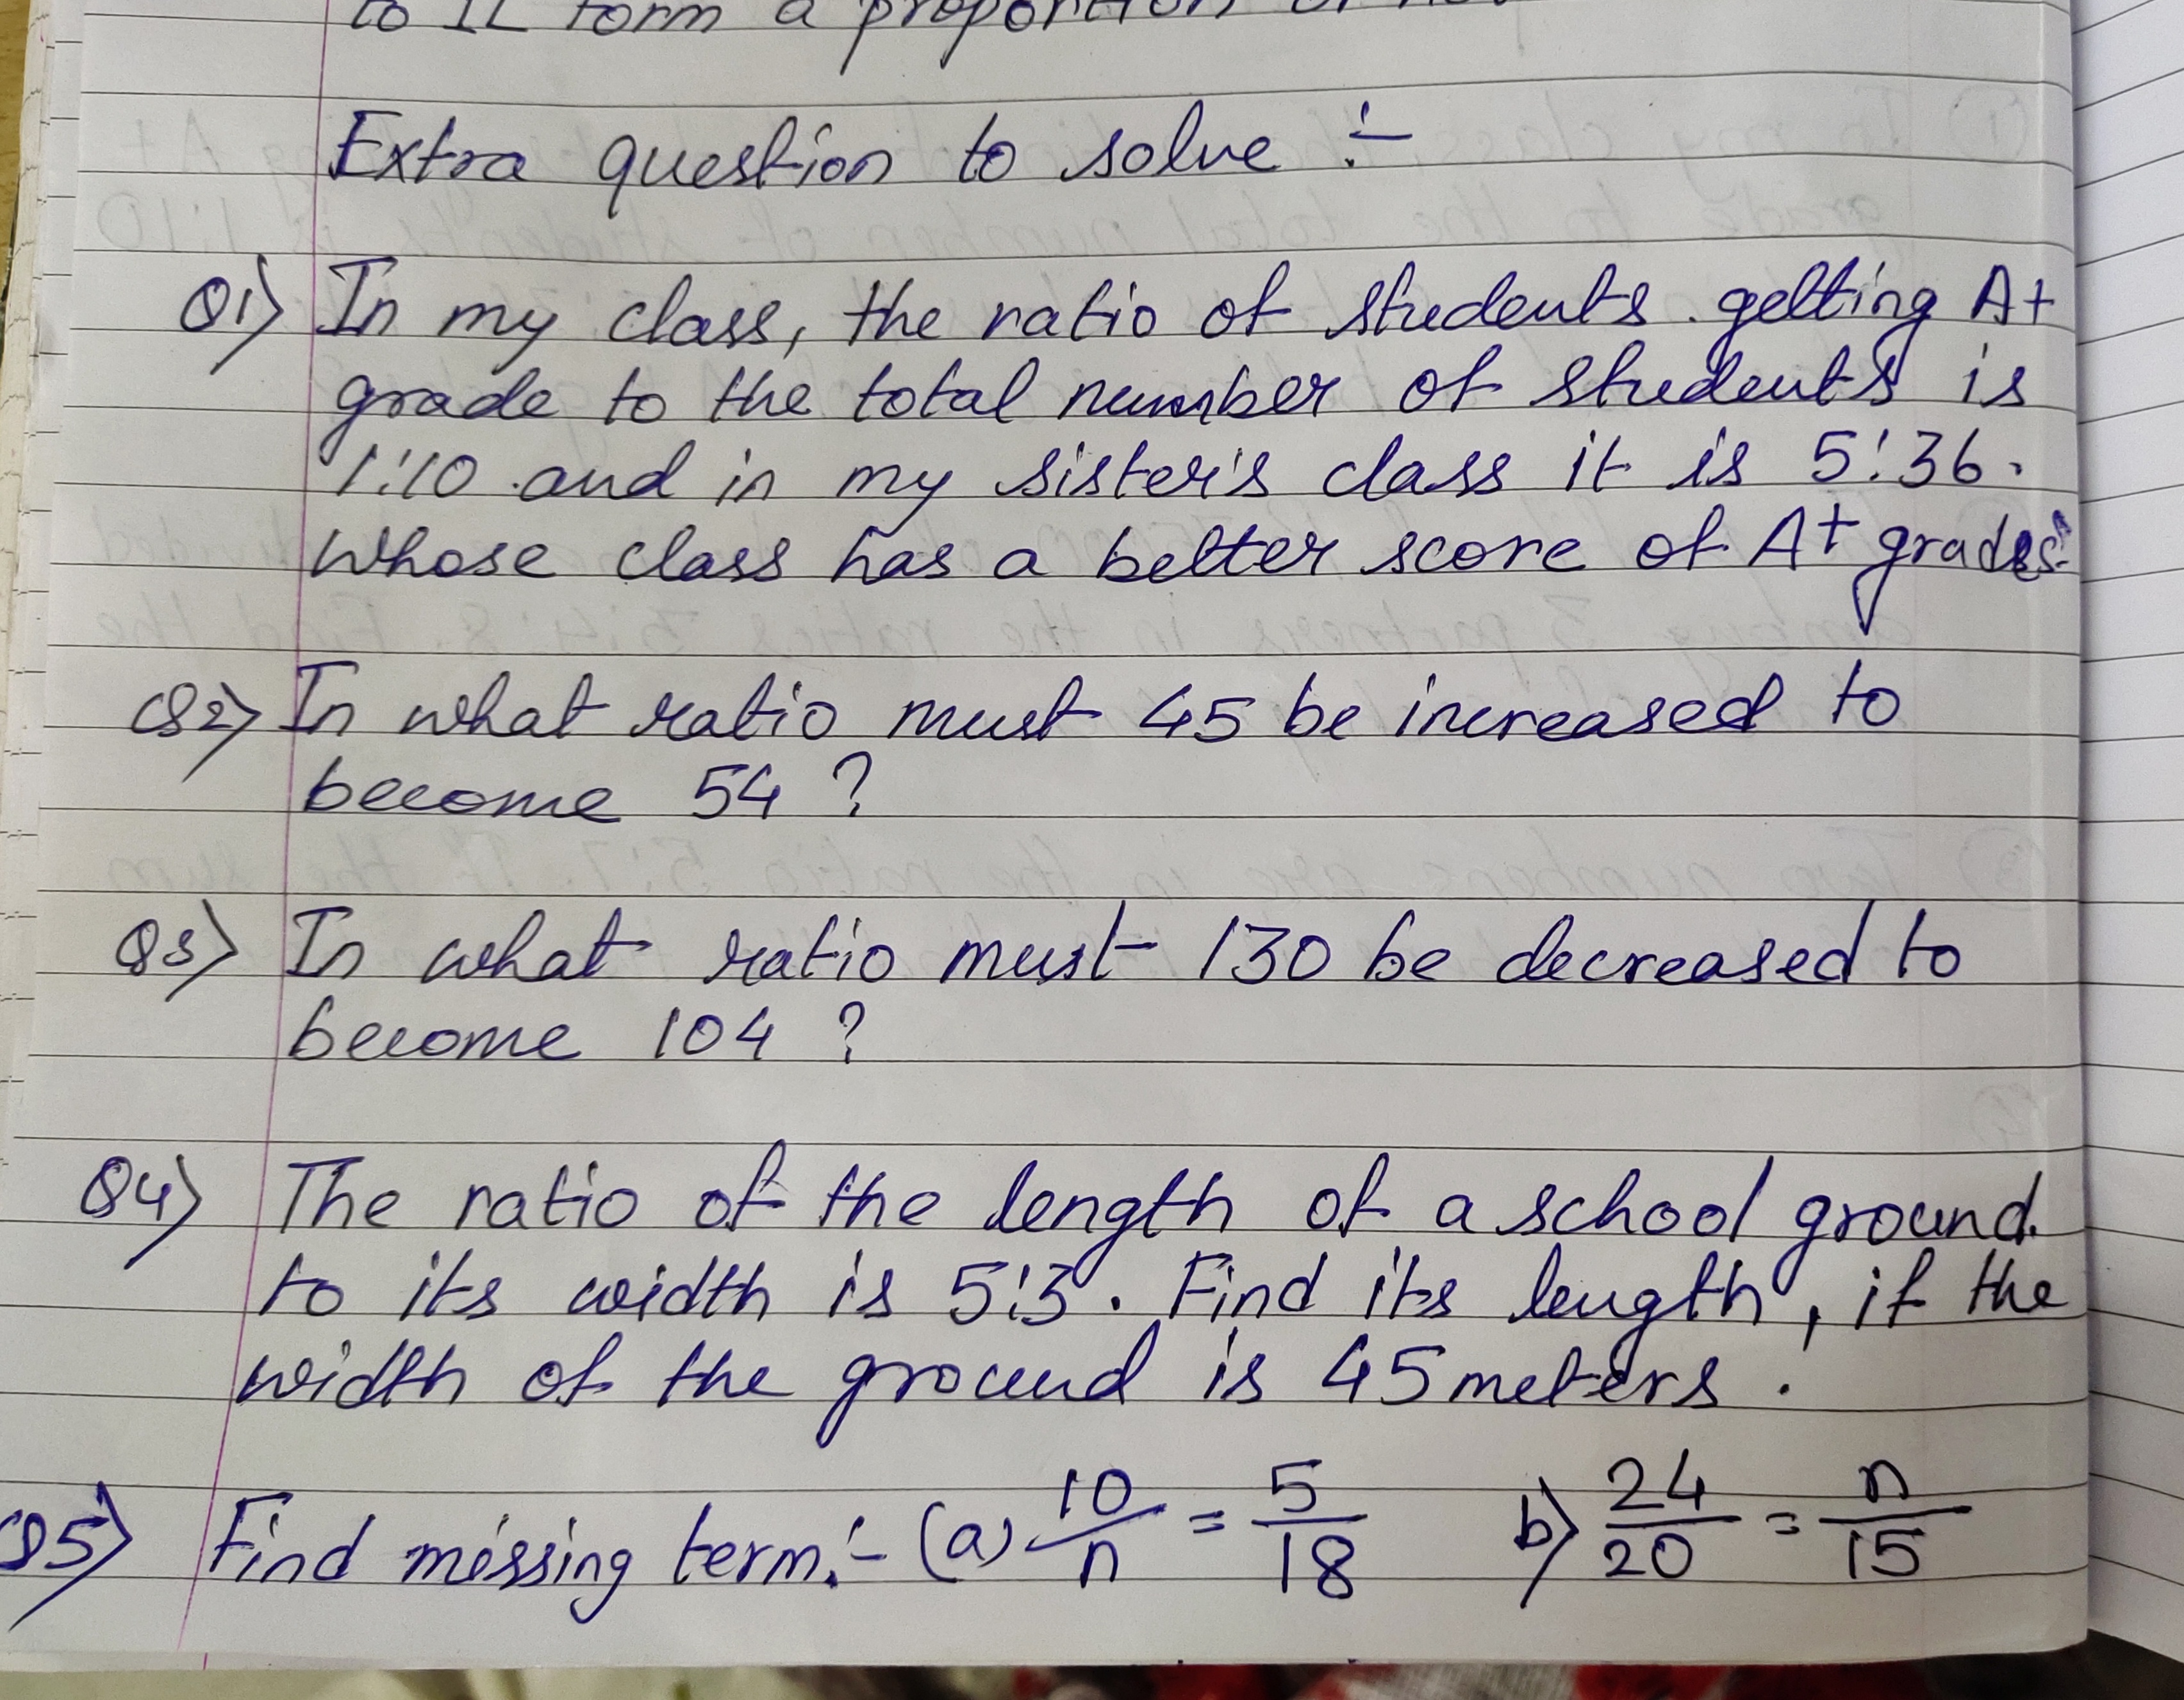 to 12 form a proportion or no
Extra question to solve :-
Q1) In my class, the ratio of students getting A+
grade to the total number of students is
1:10 and in my sister's class it is 5:36.
Whose class has a better score of A+ grades
Q2) In what ratio must 45 be increased to
become 54 ?
Q3) In what ratio must 130 be decreased to
become 104 ?
Q4) The ratio of the length of a school ground
to its width is 5:3. Find its length, if the
width of the ground is 45 meters.
Q5) Find missing term:- (a) 10/n = 5/18 b) 24/20 = n/15